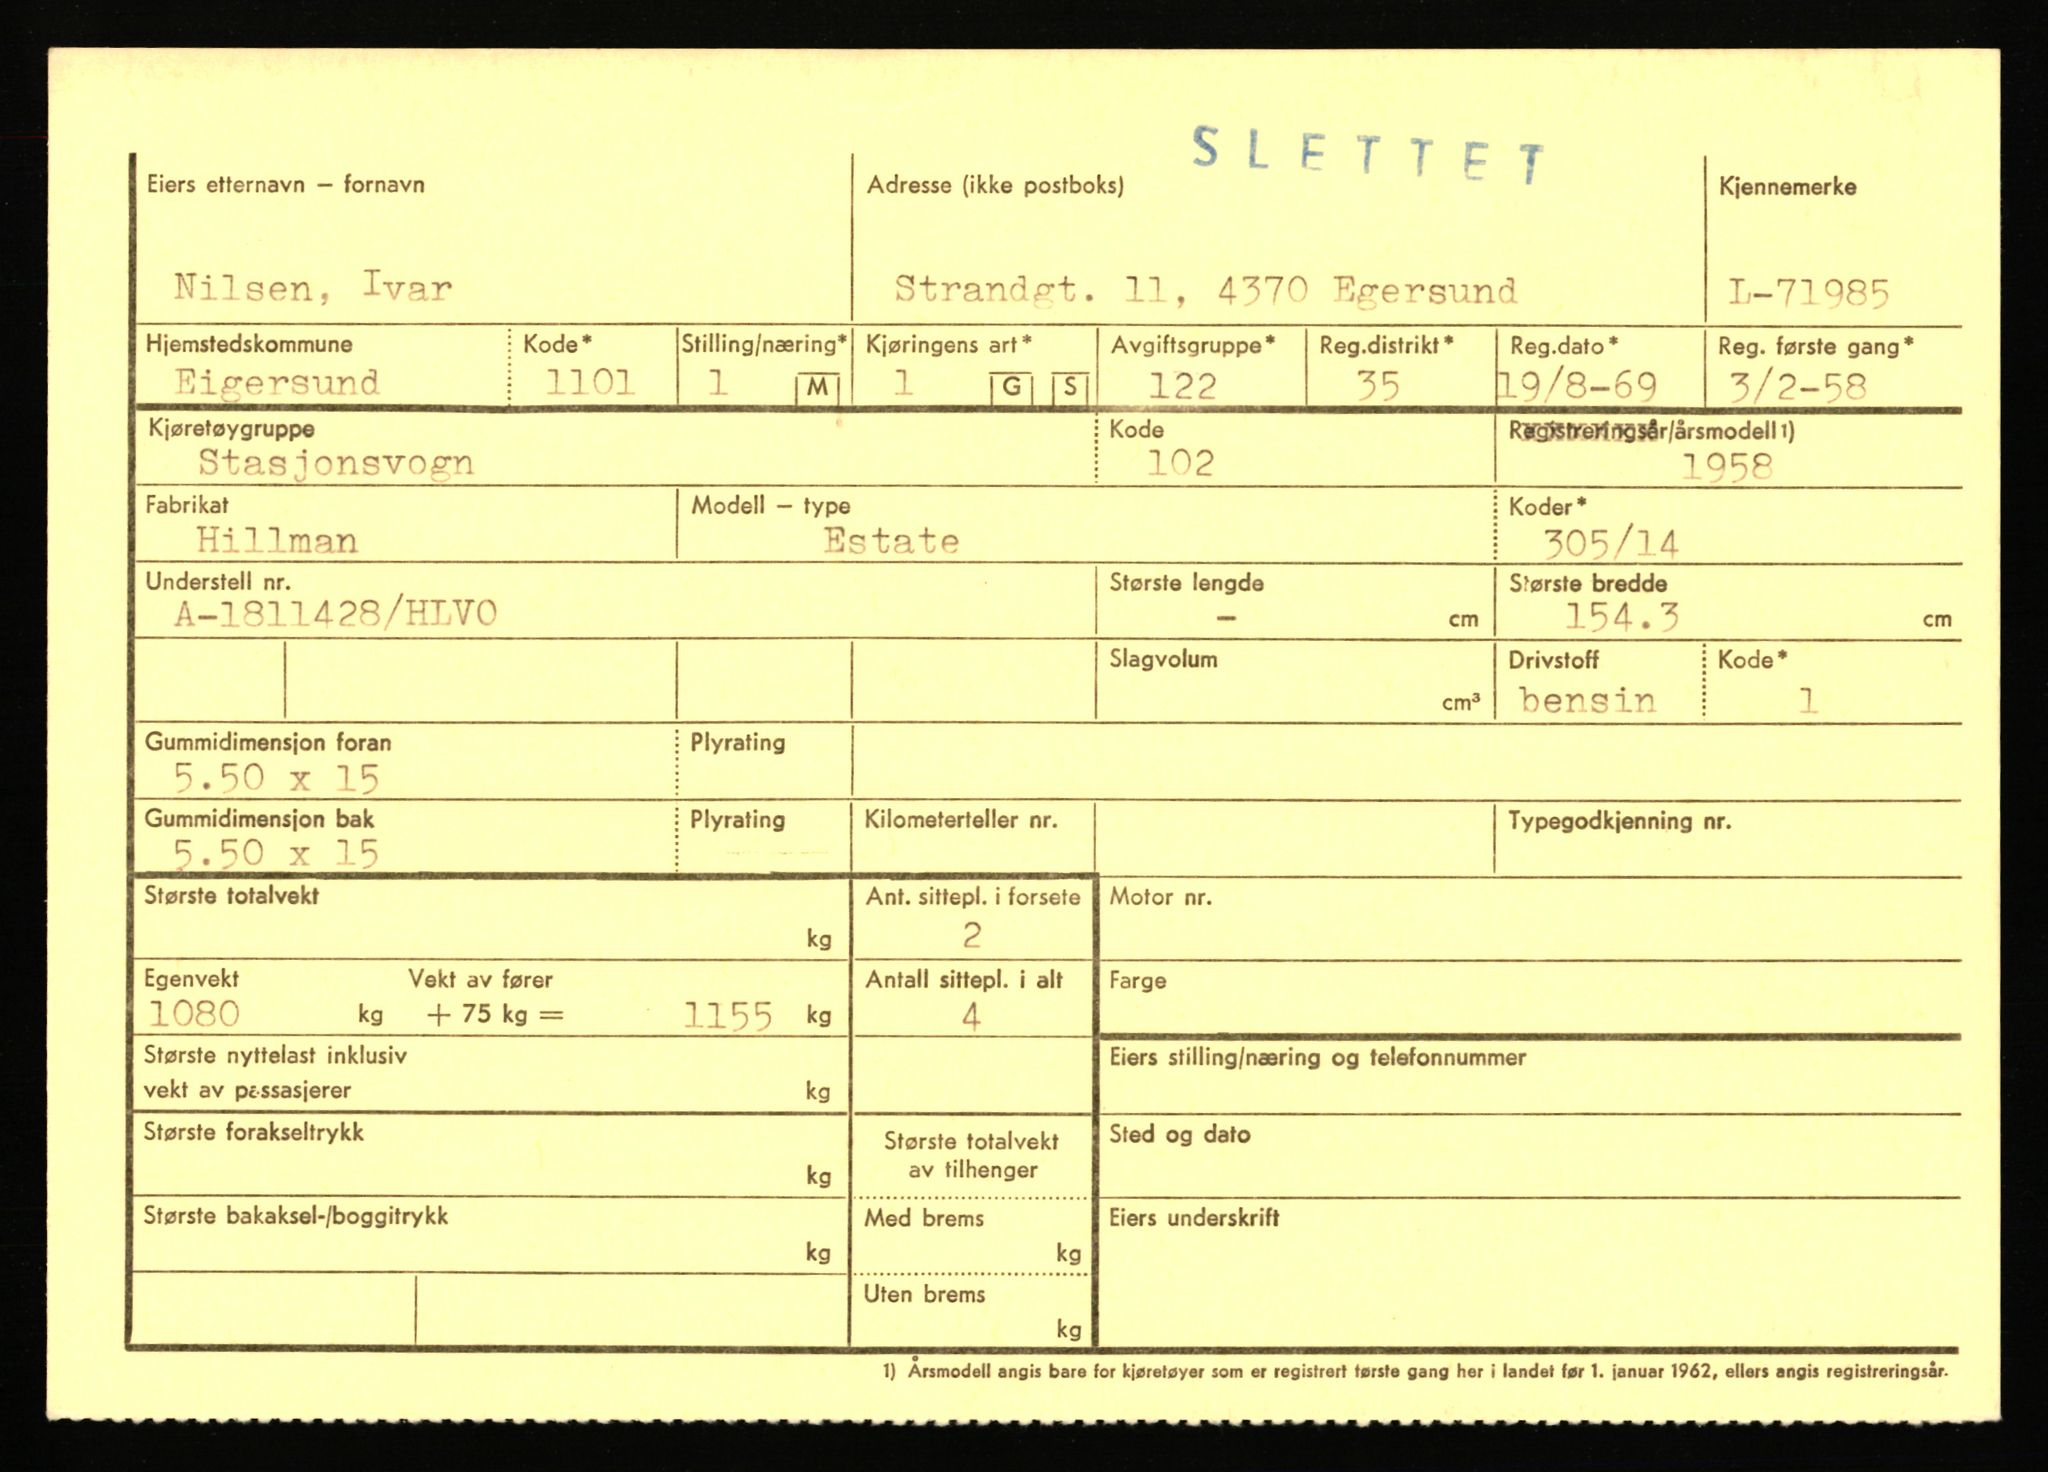 SLETTET
Eiers etternavn – fornavn Adresse (ikke postboks) Kjennemerke
Nilsen, Ivar Strandgt. 11, 4370 Egersund L-71985
Hjemstedskommune Kode* Stilling/næring* Kjøringens art* Avgiftsgruppe* Reg.distrikt* Reg.dato* Reg. første gang*
Eigersund 1101 1 M 1 G S 122 35 19/8-69 3/2-58
Kjøretøygruppe Kode Registreringsår/årsmodell 1)
Stasjonsvogn 102 1958
Fabrikat Modell – type Koder*
Hillman Estate 305/14
Understell nr. Største lengde Største bredde
A-1811428/HLVO - cm 154.3 cm
Slagvolum Drivstoff Kode*
cm³ bensin 1
Gummidimensjon foran Plyrating
5.50 x 15
Gummidimensjon bak Plyrating Kilometerteller nr. Typegodkjenning nr.
5.50 x 15
Største totalvekt Ant. sittepl. i forsete Motor nr.
kg 2
Egenvekt Vekt av fører Antall sittepl. i alt Farge
1080 kg + 75 kg = 1155 kg 4
Største nyttelast inklusiv Eiers stilling/næring og telefonnummer
vekt av passasjerer kg
Største forakseltrykk Største totalvekt Sted og dato
kg av tilhenger
Største bakaksel-/boggitrykk Med brems Eiers underskrift
kg kg
Uten brems
kg
1) Årsmodell angis bare for kjøretøyer som er registrert første gang her i landet før 1. januar 1962, ellers angis registreringsår.